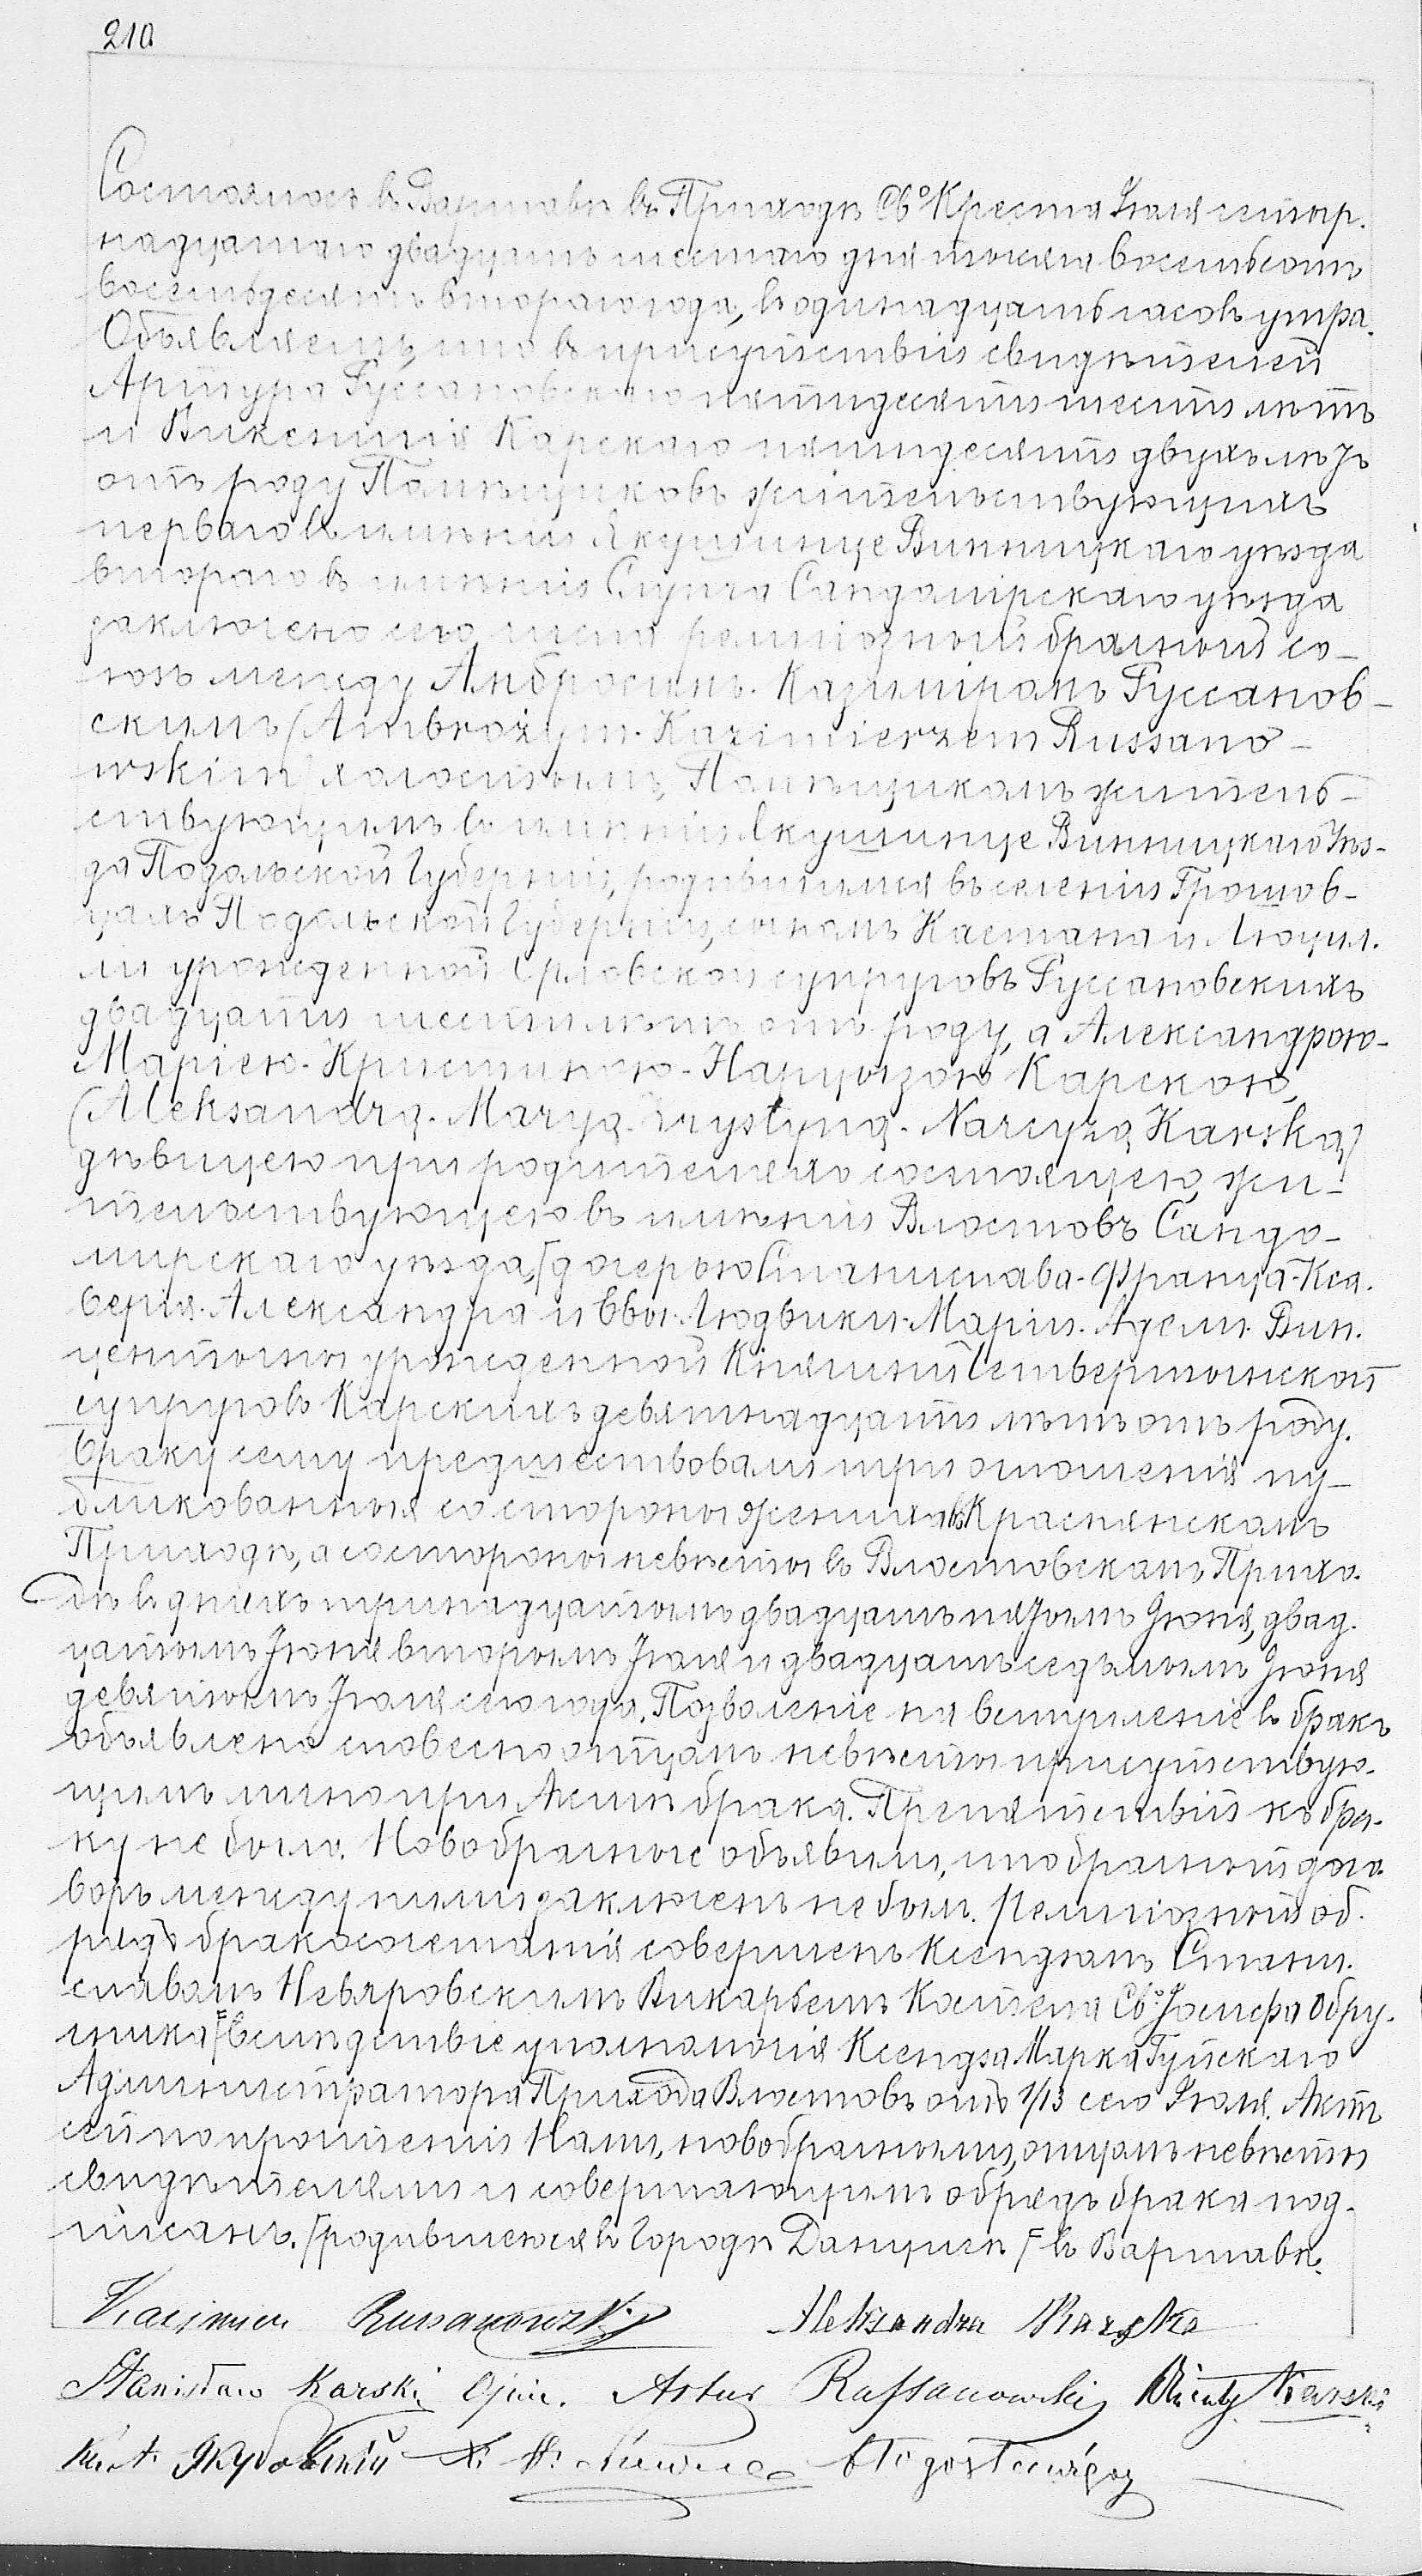 210
Состоялось въ Варшавѣ въ Приходѣ Св.о Креста Іюля четыр.
надцатаго двадцать шестаго дня тысяча восемьсотъ
восемьдесятъ втораго года, въ одинадцать часовъ утра.
Объявляемъ, что въ присутствіи свидѣтелей
Артура Руссановскаго пятидесяти шести лѣтъ
и Викентія Карскаго пятидесяти двухъ лѣтъ
отъ роду Помѣщиковъ жительствующихъ
перваго въ имѣніи Якушинце Винницкаго уѣзда
втораго въ имѣніи Слупча Сандомірскаго уѣзда
заключено сего числа религіозный брачный со-
юзъ между Амбросимъ-Казиміромъ Руссанов-
скимъ (Ambrożym-Kazimierzem Russano-
wskim) холостымъ, Помѣщикомъ житель-
ствующимъ въ имѣніи Якушинце Винницкаго Уѣз-
да Подольской Губерніи, родившимся въ селеніи Грошов-
цахъ Подольской Губерніи, сыномъ Каетана и Люцил.
ли урожденной Орловской супруговъ Руссановскихъ
двадцати шести лѣтъ отъ роду, а Александрою-
Маріею-Кристиною-Нарцызою Карскою,
(Aleksandrą-Maryą-Krystyną-Narcyzą Karską)
дѣвицею при родителяхъ состоящею, жи-
тельствующею въ имѣніи Влостовъ Сандо-
мирскаго уѣзда, [дочерью Станислава-Франца-Кса.
верія-Александра и Евы-Людвики-Маріи-Адели-Вин.
центины урожденной Княжны Четвертынской
супруговъ Карскихъ девятнадцати лѣтъ отъ роду.
Браку сему предшествовали три оглошенія пу-
бликованныя со стороны жениха въ Краснянскомъ
Приходѣ, а со стороны невѣсты въ Влостовскомъ Прихо.
дѣ въ дняхъ тринадцатымъ двадцать пятымъ Іюня, двад.
цатымъ Іюня вторымъ Іюля и двадцать седьмымъ Іюня
девятымъ Іюля сего года. Позволеніе на вступленіе въ бракъ
объявлено словесно отцомъ невѣсты присутствую.
щимъ лично при Актѣ брака. Препятствій къ бра-
ку не было. Новобрачные объявили, что брачный дого.
воръ между ними заключенъ не былъ. Религіозный об.
рядъ бракосочетанія совершенъ Ксендзомъ Стани.
славомъ Невяровскимъ Викарьемъ Костела Св.о Іосифа Обру.
чника [=вслѣдствіе уполномочія Ксендза Марка Гуйскаго
Администратора Прихода Влостовъ отъ 1/13 сего Іюля. Актъ
сей по прочтеніи Нами, новобрачными, отцомъ невѣсты
свидѣтелями и совершающимъ обрядъ брака под.
писанъ. [родившеюся въ городѣ Данцигѣ [= въ Варшавѣ.
Kazimierz Russanowski Aleksandra Karska
Stanisław Karski Ojciec. Artur Russanowski Wincenty Karski